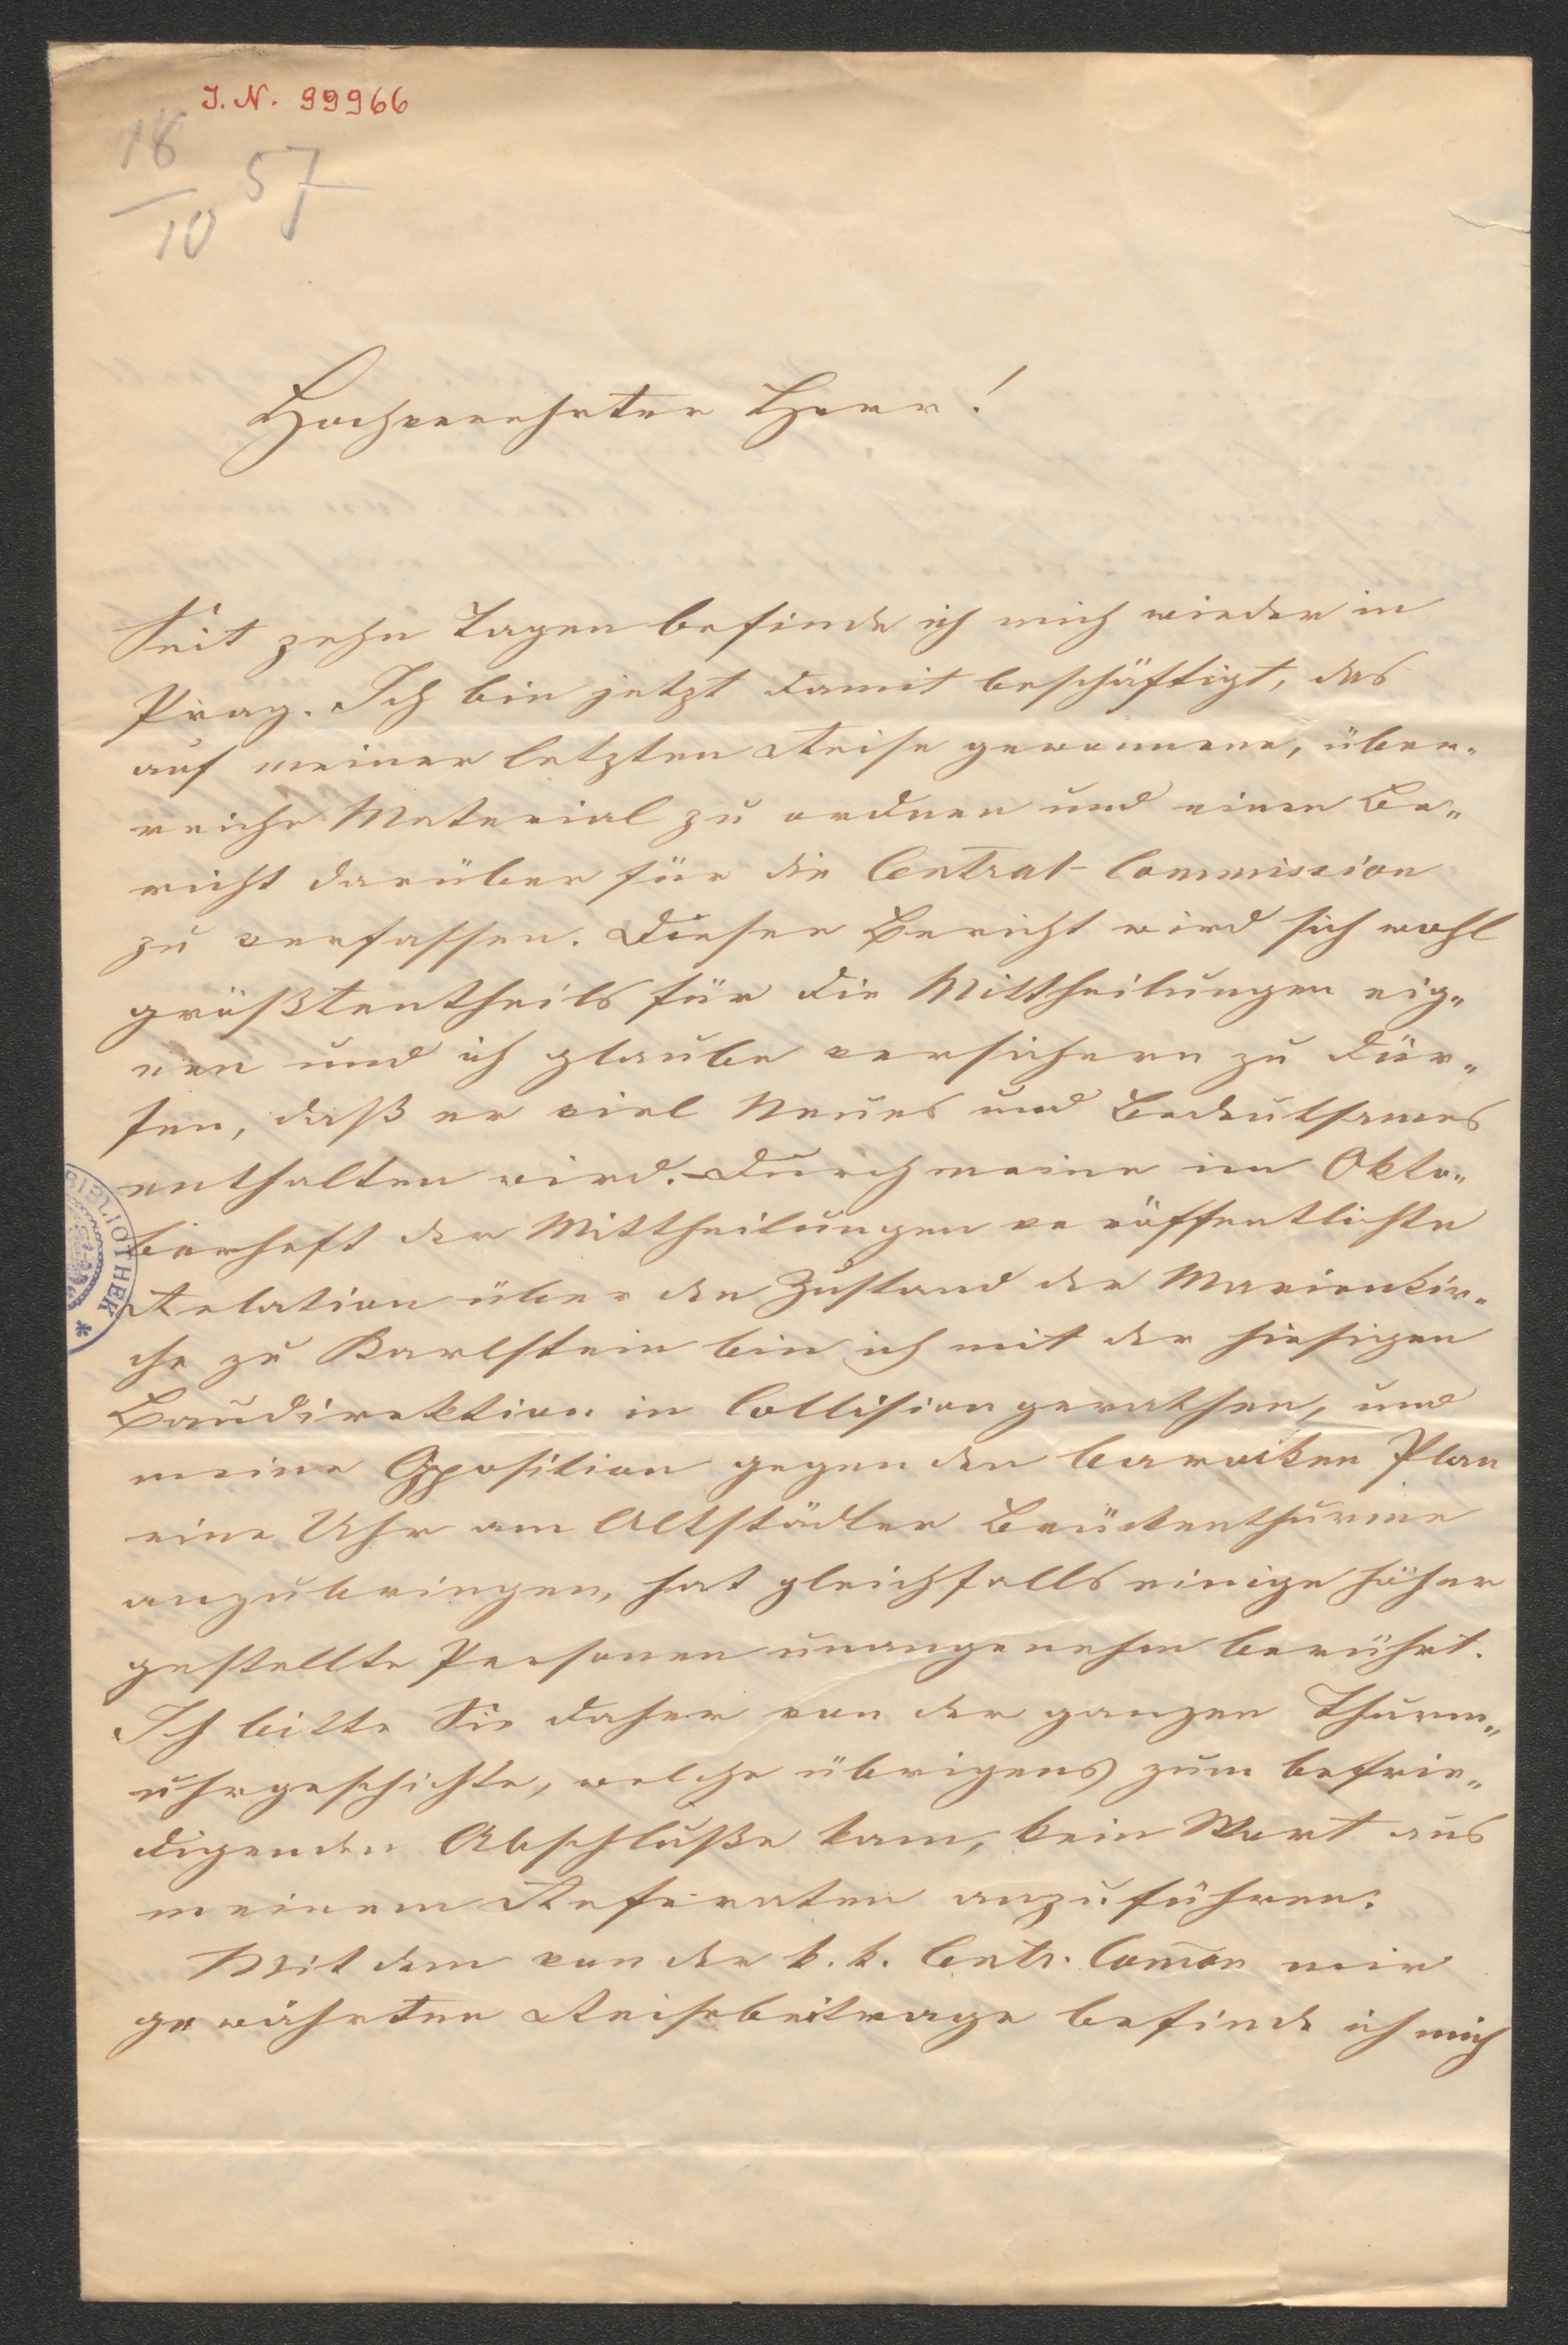 I. N. 99966
18/10 57
Hochverehrter Herr!
Seit zehn Tagen befinde ich mich wieder in
Prag. Ich bin jetzt damit beschäftigt, das
auf meiner letzten Reise gewonnene, über„
reiche Material zu ordnen und einen Be„
richt darüber für die Central-Commission
zu verfassen. Dieser Bericht wird sich wohl
größtentheils für die Mittheilungen eig„
nen und ich glaube versichern zu dür„
fen, daß er viel Neues und Bedeutsames
enthalten wird. – Durch meine im Okto„
berheft der Mittheilungen veröffentlichte
Relation über den Zustand der Marienkir„
che zu Karlstein bin ich mit der hiesigen
Baudirektion in Collision gerathen, und
meine Opposition gegen den baroken Plan
eine Uhr am Altstädter Brückenthurme
anzubringen, hat gleichfalls einige höher
gestellte Personen unangenehm berührt.
Ich bitte Sie daher von der ganzen Thurm„
uhrgeschichte, welche übrigens zum befrie„
digenden Abschluße kam, kein Wort aus
meinem Referaten anzuführen.
Mit dem von der k. k. Centr. Com̅on mir
gewährten Reisebeitrage befinde ich mich
BIBLIOTHEK *